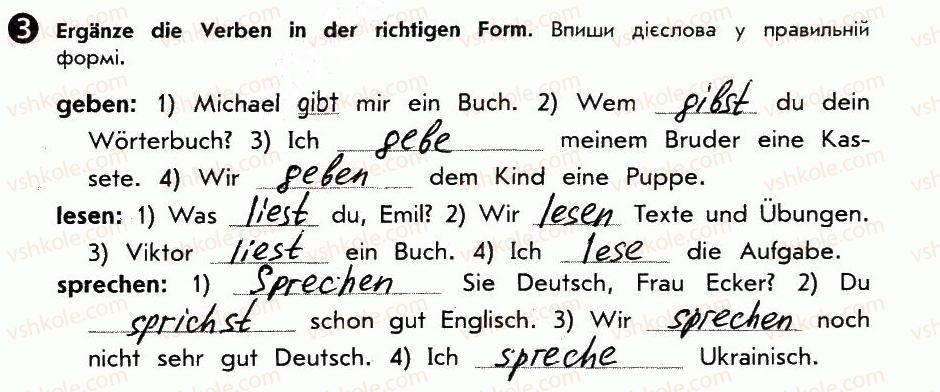 3 Ergänze die Verben in der richtigen Form. Впиши дієслова у правильній
формі.
geben: 1) Michael gibt mir ein Buch. 2) Wem gibst du dein
Wörterbuch? 3) Ich gebe meinem Bruder eine Kas-
sete. 4) Wir geben dem Kind eine Puppe.
lesen: 1) Was liest du, Emil? 2) Wir lesen Texte und Übungen.
3) Viktor liest ein Buch. 4) Ich lese die Aufgabe.
sprechen: 1) Sprechen Sie Deutsch, Frau Ecker? 2) Du
sprichst schon gut Englisch. 3) Wir sprechen noch
nicht sehr gut Deutsch. 4) Ich spreche Ukrainisch.